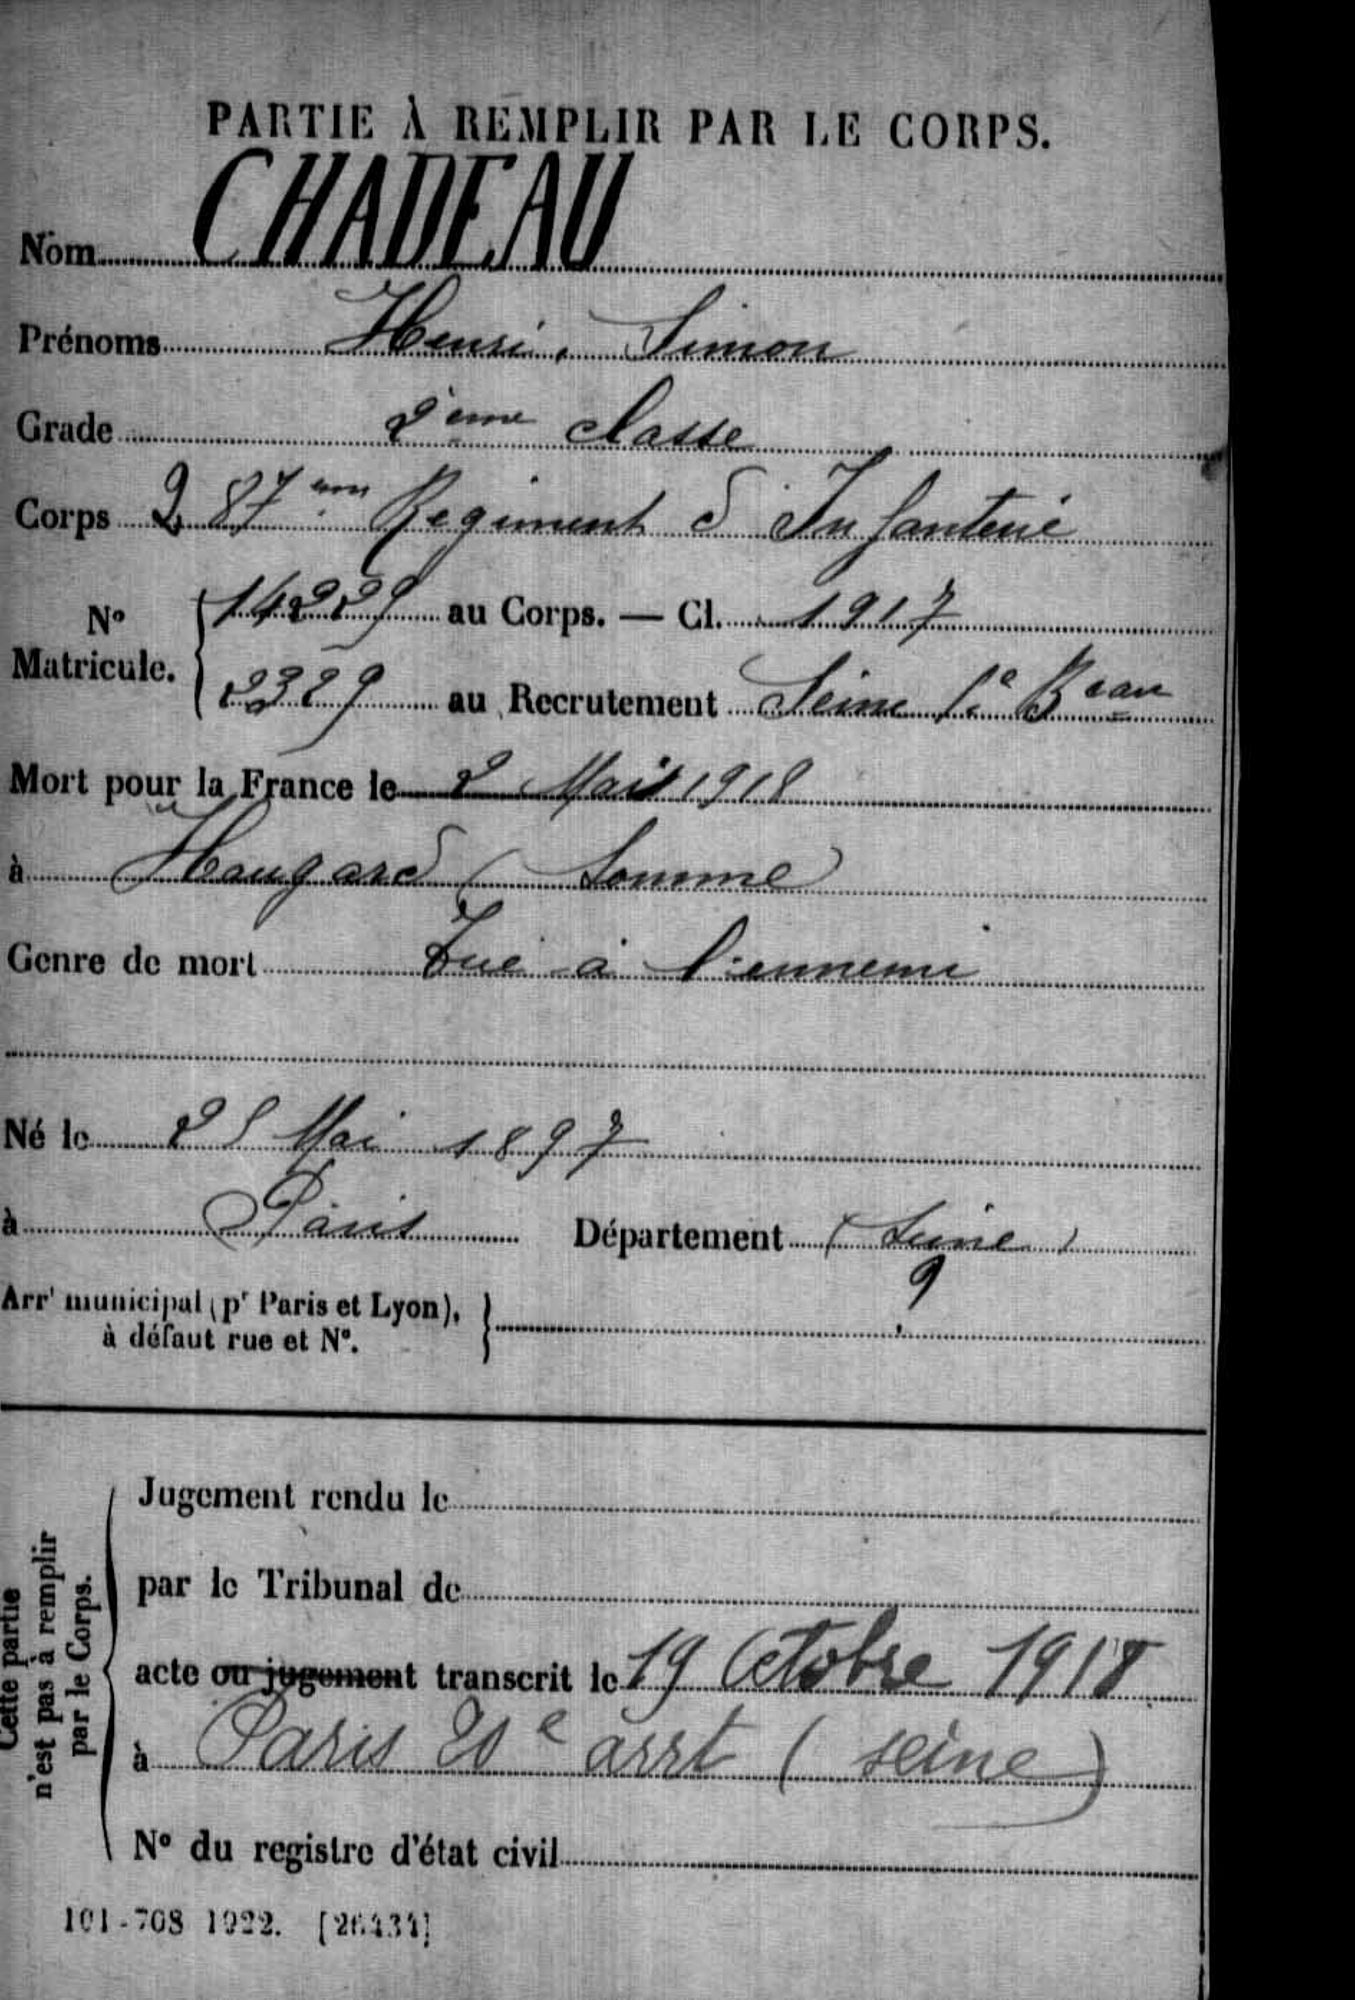 PARTIE À REMPLIR PAR LE CORPS.
Nom CHADEAU
Prénoms Henri, Simon
Grade 2ème classe
Corps 287ème Regiment d'Infanterie
N° Matricule. 14229 au Corps. — Cl. 1917
2329 au Recrutement Seine 1e Beau
Mort pour la France le 2 Mai 1918
à Hangard (Somme)
Genre de mort Tué à l'ennemi
Né le 25 Mai 1897
à Paris Département (Seine)
Arrt municipal (pr Paris et Lyon), à défaut rue et N°. 9
Cette partie n'est pas à remplir par le Corps.
Jugement rendu le
par le Tribunal de
acte ou jugement transcrit le 19 Octobre 1918
à Paris 20e arrt (seine)
N° du registre d'état civil
101-708 1922. [26434]